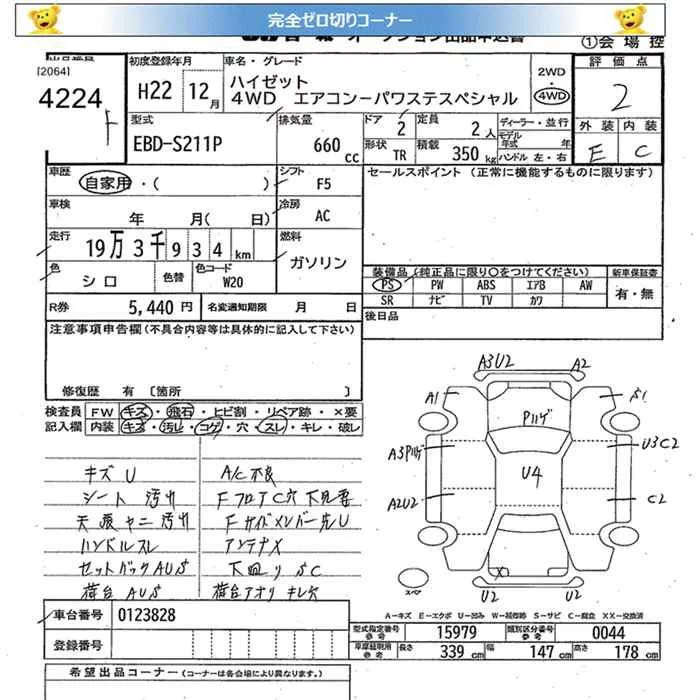 完全ゼロ切りコーナー
オークション出品申込書
①会場控
[2064]
4224
F
初度登録年月
H22 12月
車名・グレード
ハイゼット
4WD エアコンーパワステスペシャル
2WD
4WD
評価点
2
外装 内装
E C
型式
EBD-S211P
排気量
660cc
ドア 2
定員 2人
形状 TR
積載 350kg
ディーラー・並行
モデル年式 年
ハンドル 左・右
車歴
自家用・( )
シフト
F5
車検
年 月( 日)
冷房
AC
走行
19万3千934km
燃料
ガソリン
色
シロ
色替
色コード
W20
R券 5,440円
名変通知期限 月 日
セールスポイント (正常に機能するものに限ります)
装備品 (純正品に限り○をつけてください)
新車保証書
PS PW ABS エアB AW
SR ナビ TV カワ
有・無
後日品
注意事項申告欄 (不具合内容等は具体的に記入して下さい)
修復歴 有 〔箇所 〕
検査員記入欄
FW キズ・飛石・ヒビ割・リペア跡・×要
内装 キズ・汚レ・コゲ・穴・スレ・キレ・破レ
キズ U
シート 汚れ
天張 ヤニ 汚れ
ハンドルスレ
セットバック AUS
荷台 AUS
A/C 不良
Fフロア C穴 下見要
Fサイドメンバー先 U
アンテナX
下廻り SC
荷台アオリ キレ穴
A3U2
A2
A1
S1
Pハゲ
A3Pハゲ
U3C2
U4
A2U2
C2
X
U2
U2
スペア
A=キズ E=エクボ U=凹み W=補修跡 S=サビ C=腐食 XX=交換済
車台番号 0123828
登録番号
型式指定番号 参考 15979
類別区分番号 参考 0044
長さ 339cm
幅 147cm
高さ 178cm
希望出品コーナー (コーナーは各会場により異なります。)